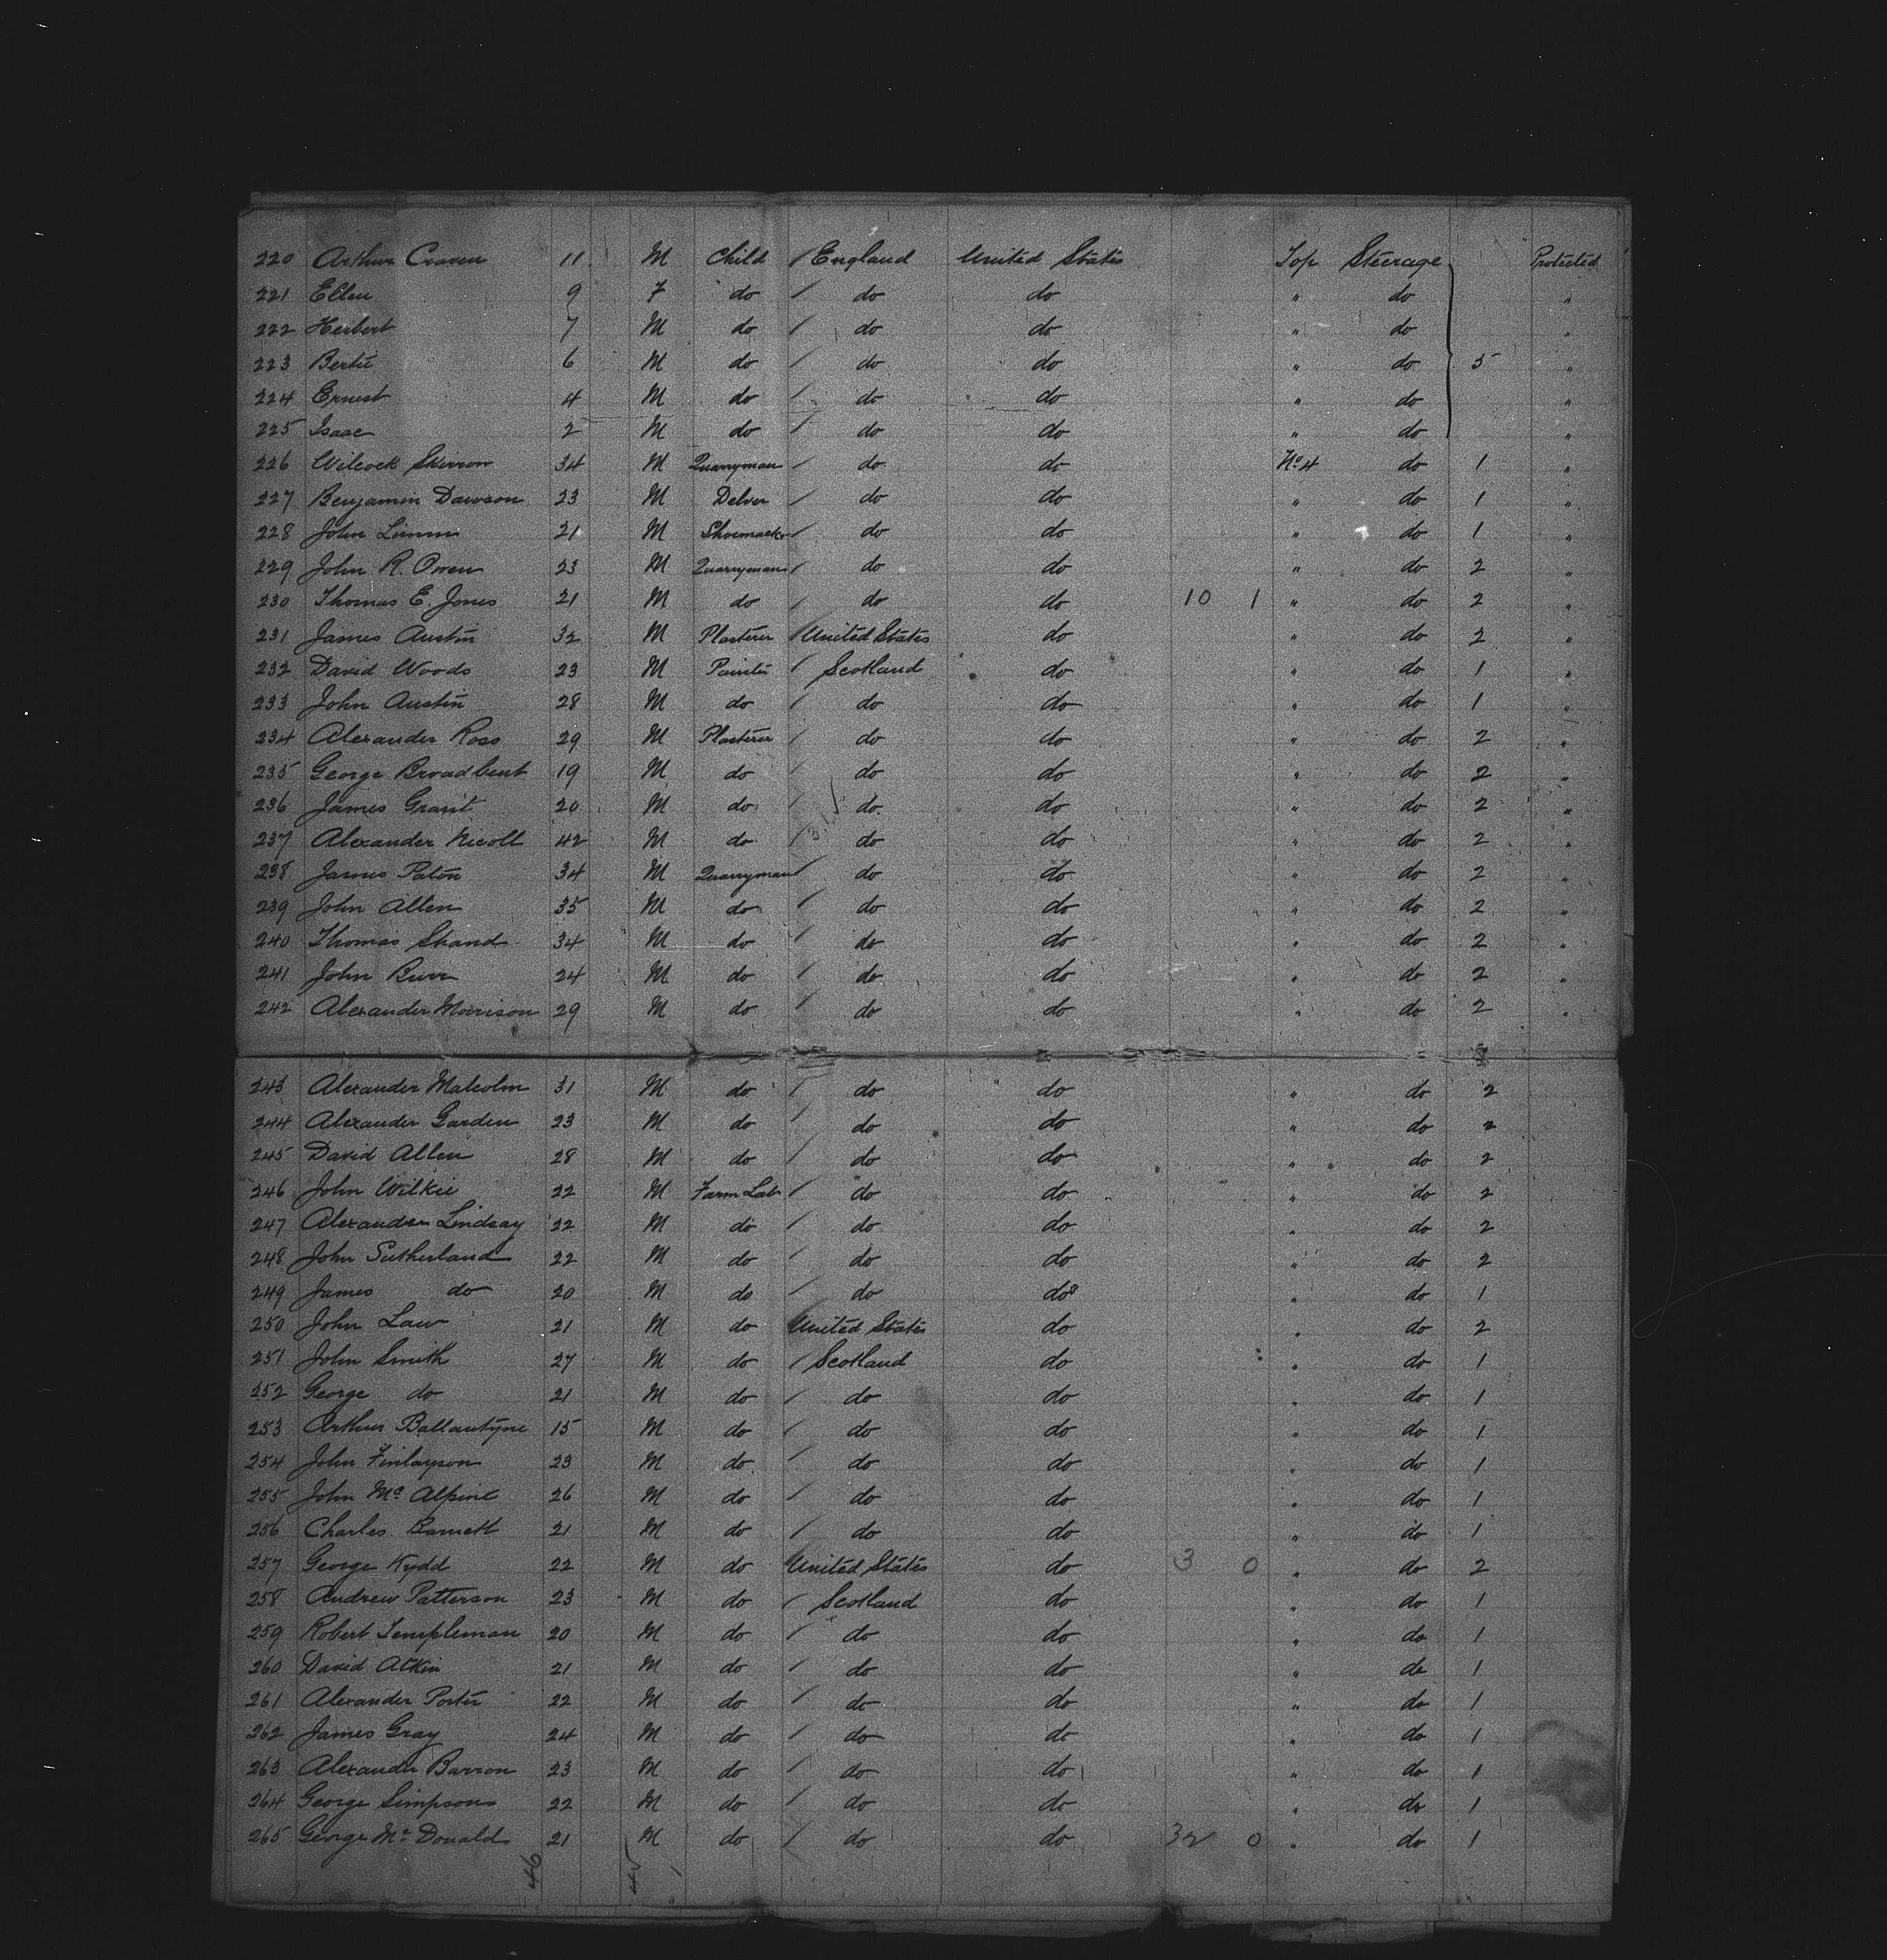 220 Arthur Craven 11 M Child / England United States Top Steerage Protected
221 Ellen 9 F do / do do " do "
222 Herbert 7 M do / do do " do "
223 Bertie 6 M do / do do " do 5 "
224 Ernest 4 M do / do do " do "
225 Isaac 2 M do / do do " do "
226 Wilcock 34 M Quarryman / do do No 4 do 1 "
227 Benjamin Dawson 23 M Delver / do do " do 1 "
228 John 21 M Shoemaker / do do " do 1 "
229 John R. Owen 23 M Quarryman / do do " do 2 "
230 Thomas E. Jones 21 M do / do do 10 1 " do 2 "
231 James Austin 32 M Plasterer / United States do " do 2 "
232 David Woods 23 M Painter / Scotland do " do 1 "
233 John Austin 28 M do / do do " do 1 "
234 Alexander Ross 29 M Plasterer / do do " do 2 "
235 George Broadbent 19 M do / do do " do 2 "
236 James Grant 20 M do / do do " do 2 "
237 Alexander Nicoll 42 M do / do do " do 2 "
238 James Paton 34 M Quarryman / do do " do 2 "
239 John Allen 35 M do / do do " do 2 "
240 Thomas Shand 34 M do / do do " do 2 "
241 John Burr 24 M do / do do " do 2 "
242 Alexander Morrison 29 M do / do do " do 2 "
243 Alexander Malcolm 31 M do / do do " do 2
244 Alexander Garden 23 M do / do do " do 2
245 David Allen 28 M do / do do " do 2
246 John Wilkie 22 M Farm Lab / do do " do 2
247 Alexander Lindsay 22 M do / do do " do 2
248 John Sutherland 22 M do / do do " do 2
249 James do 20 M do / do do " do 1
250 John Law 21 M do United States do " do 2
251 John Smith 27 M do / Scotland do " do 1
252 George do 21 M do / do do " do 1
253 Arthur Ballantyne 15 M do / do do " do 1
254 John Finlayson 23 M do / do do " do 1
255 John Mc Alpine 26 M do / do do " do 1
256 Charles Barnett 21 M do / do do " do 1
257 George Kydd 22 M do United States do 3 0 " do 2
258 Andrew Patterson 23 M do / Scotland do " do 1
259 Robert Templeman 20 M do / do do " do 1
260 David Atkin 21 M do / do do " do 1
261 Alexander Porter 22 M do / do do " do 1
262 James Gray 24 M do / do do " do 1
263 Alexander Barron 23 M do / do do " do 1
264 George Simpson 22 M do / do do " do 1
265 George Mc Donald 21 M do / do do 32 0 " do 1
46 45 1